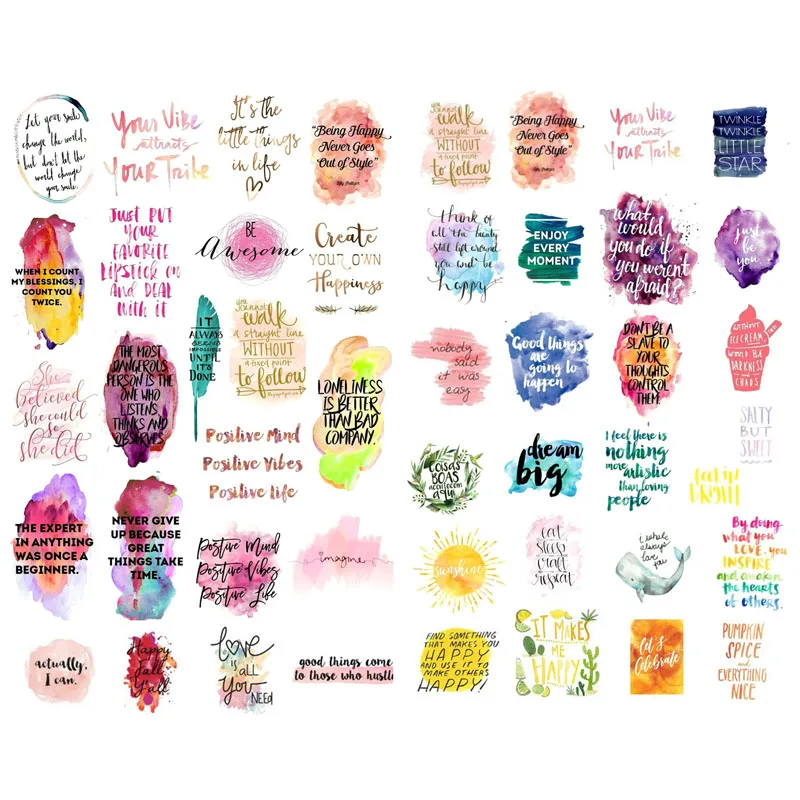 Let your smile
change the world,
but don't let the
world change
your smile.
Your Vibe
attracts
Your Tribe
It's the
little things
in life
"Being Happy
Never Goes
Out of Style"
you cannot
walk
a straight line
WITHOUT
a fixed point
to follow
"Being Happy
Never Goes
Out of Style"
Your Vibe
attracts
Your Tribe
TWINKLE
TWINKLE
LITTLE
STAR
WHEN I COUNT
MY BLESSINGS, I
COUNT YOU
TWICE.
JUST PUT
YOUR
FAVORITE
LIPSTICK ON
AND DEAL
with it
BE
Awesome
Create
YOUR OWN
Happiness
think of
all the beauty
still left around
you and be
happy
ENJOY
EVERY
MOMENT
what
would
you do if
you weren't
afraid?
just
be
you
She
believed
she could
so
she did
THE MOST
DANGEROUS
PERSON IS THE
ONE WHO
LISTENS,
THINKS AND
OBSERVES.
IT
ALWAYS
SEEMS
IMPOSSIBLE
UNTIL
IT'S
DONE
you cannot
walk
a straight line
WITHOUT
a fixed point
to follow
LONELINESS
IS BETTER
THAN BAD
COMPANY.
nobody
said
it was
easy
Good things
are
going to
happen
DON'T BE A
SLAVE TO
YOUR
THOUGHTS,
CONTROL
THEM.
WITHOUT
ICE CREAM,
WOULD BE
DARKNESS
and
CHAOS
Positive Mind
Positive Vibes
Positive Life
coisas
BOAS
acontecem
aqui
dream
big
I feel there is
nothing
more
artistic
than loving
people
SALTY
BUT
SWEET
THE EXPERT
IN ANYTHING
WAS ONCE A
BEGINNER.
NEVER GIVE
UP BECAUSE
GREAT
THINGS TAKE
TIME.
Positive Mind
Positive Vibes
Positive Life
imagine
sunshine
eat
sleep
craft
repeat
i whale
always
love you
By doing
what you
LOVE, you
INSPIRE
and awaken
the hearts
of others.
actually,
I can.
Happy
fall
Y'all
LOVE
is ALL
You
NEED
good things come
to those who hustle
FIND SOMETHING
THAT MAKES YOU
HAPPY
AND USE IT TO
MAKE OTHERS
HAPPY!
IT MAKES
ME
HAPPY
Let's
Celebrate
PUMPKIN
SPICE
and
EVERYTHING
NICE